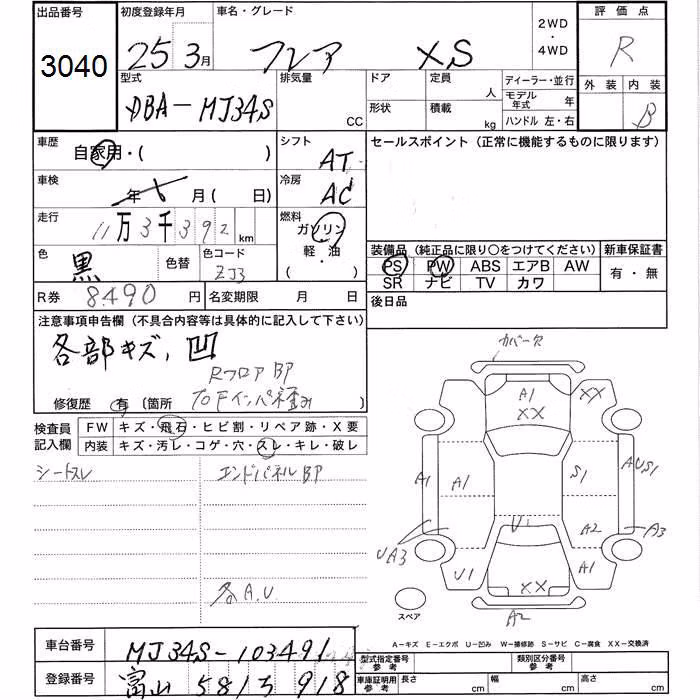 出品番号 初度登録年月 車名・グレード 2WD・4WD 評価点
3040 25 3月 フレア XS R
型式 排気量 CC ドア 定員 人 ディーラー・並行 外装 内装
DBA-MJ34S 形状 積載 kg モデル年式 年 B
ハンドル 左・右
車歴 自家用・( ) シフト AT セールスポイント (正常に機能するものに限ります)
車検 年 月 ( 日) 冷房 AC
走行 11万3千392km 燃料 ガソリン
色 黒 色替 色コード ZJ3 軽・油 ( ・ )
装備品 (純正品に限り○をつけてください) 新車保証書
PS PW ABS エアB AW 有・無
SR ナビ TV カワ
R券 8490円 名変期限 月 日 後日品
注意事項申告欄 (不具合内容等は具体的に記入して下さい)
各部キズ,凹
RフロアBP
修復歴 有 (箇所 )
検査員記入欄 FW キズ・飛石・ヒビ割・リペア跡・X要
内装 キズ・汚レ・コゲ・穴・スレ・キレ・破レ
シートスレ エンドパネルBP
各A.U
カバー欠
A1 XX
XX
A1 A1 S1 AUS1
U1 A2 A3
UA3
U1 XX A1
A2
スペア
A-キズ E-エクボ U-凹み W-補修跡 S-サビ C-腐食 XX-交換済
車台番号 MJ34S-103491 型式指定番号 参考 類別区分番号 参考
登録番号 富山 581 918 車庫証明用 参考 長さ cm 幅 cm 高さ cm